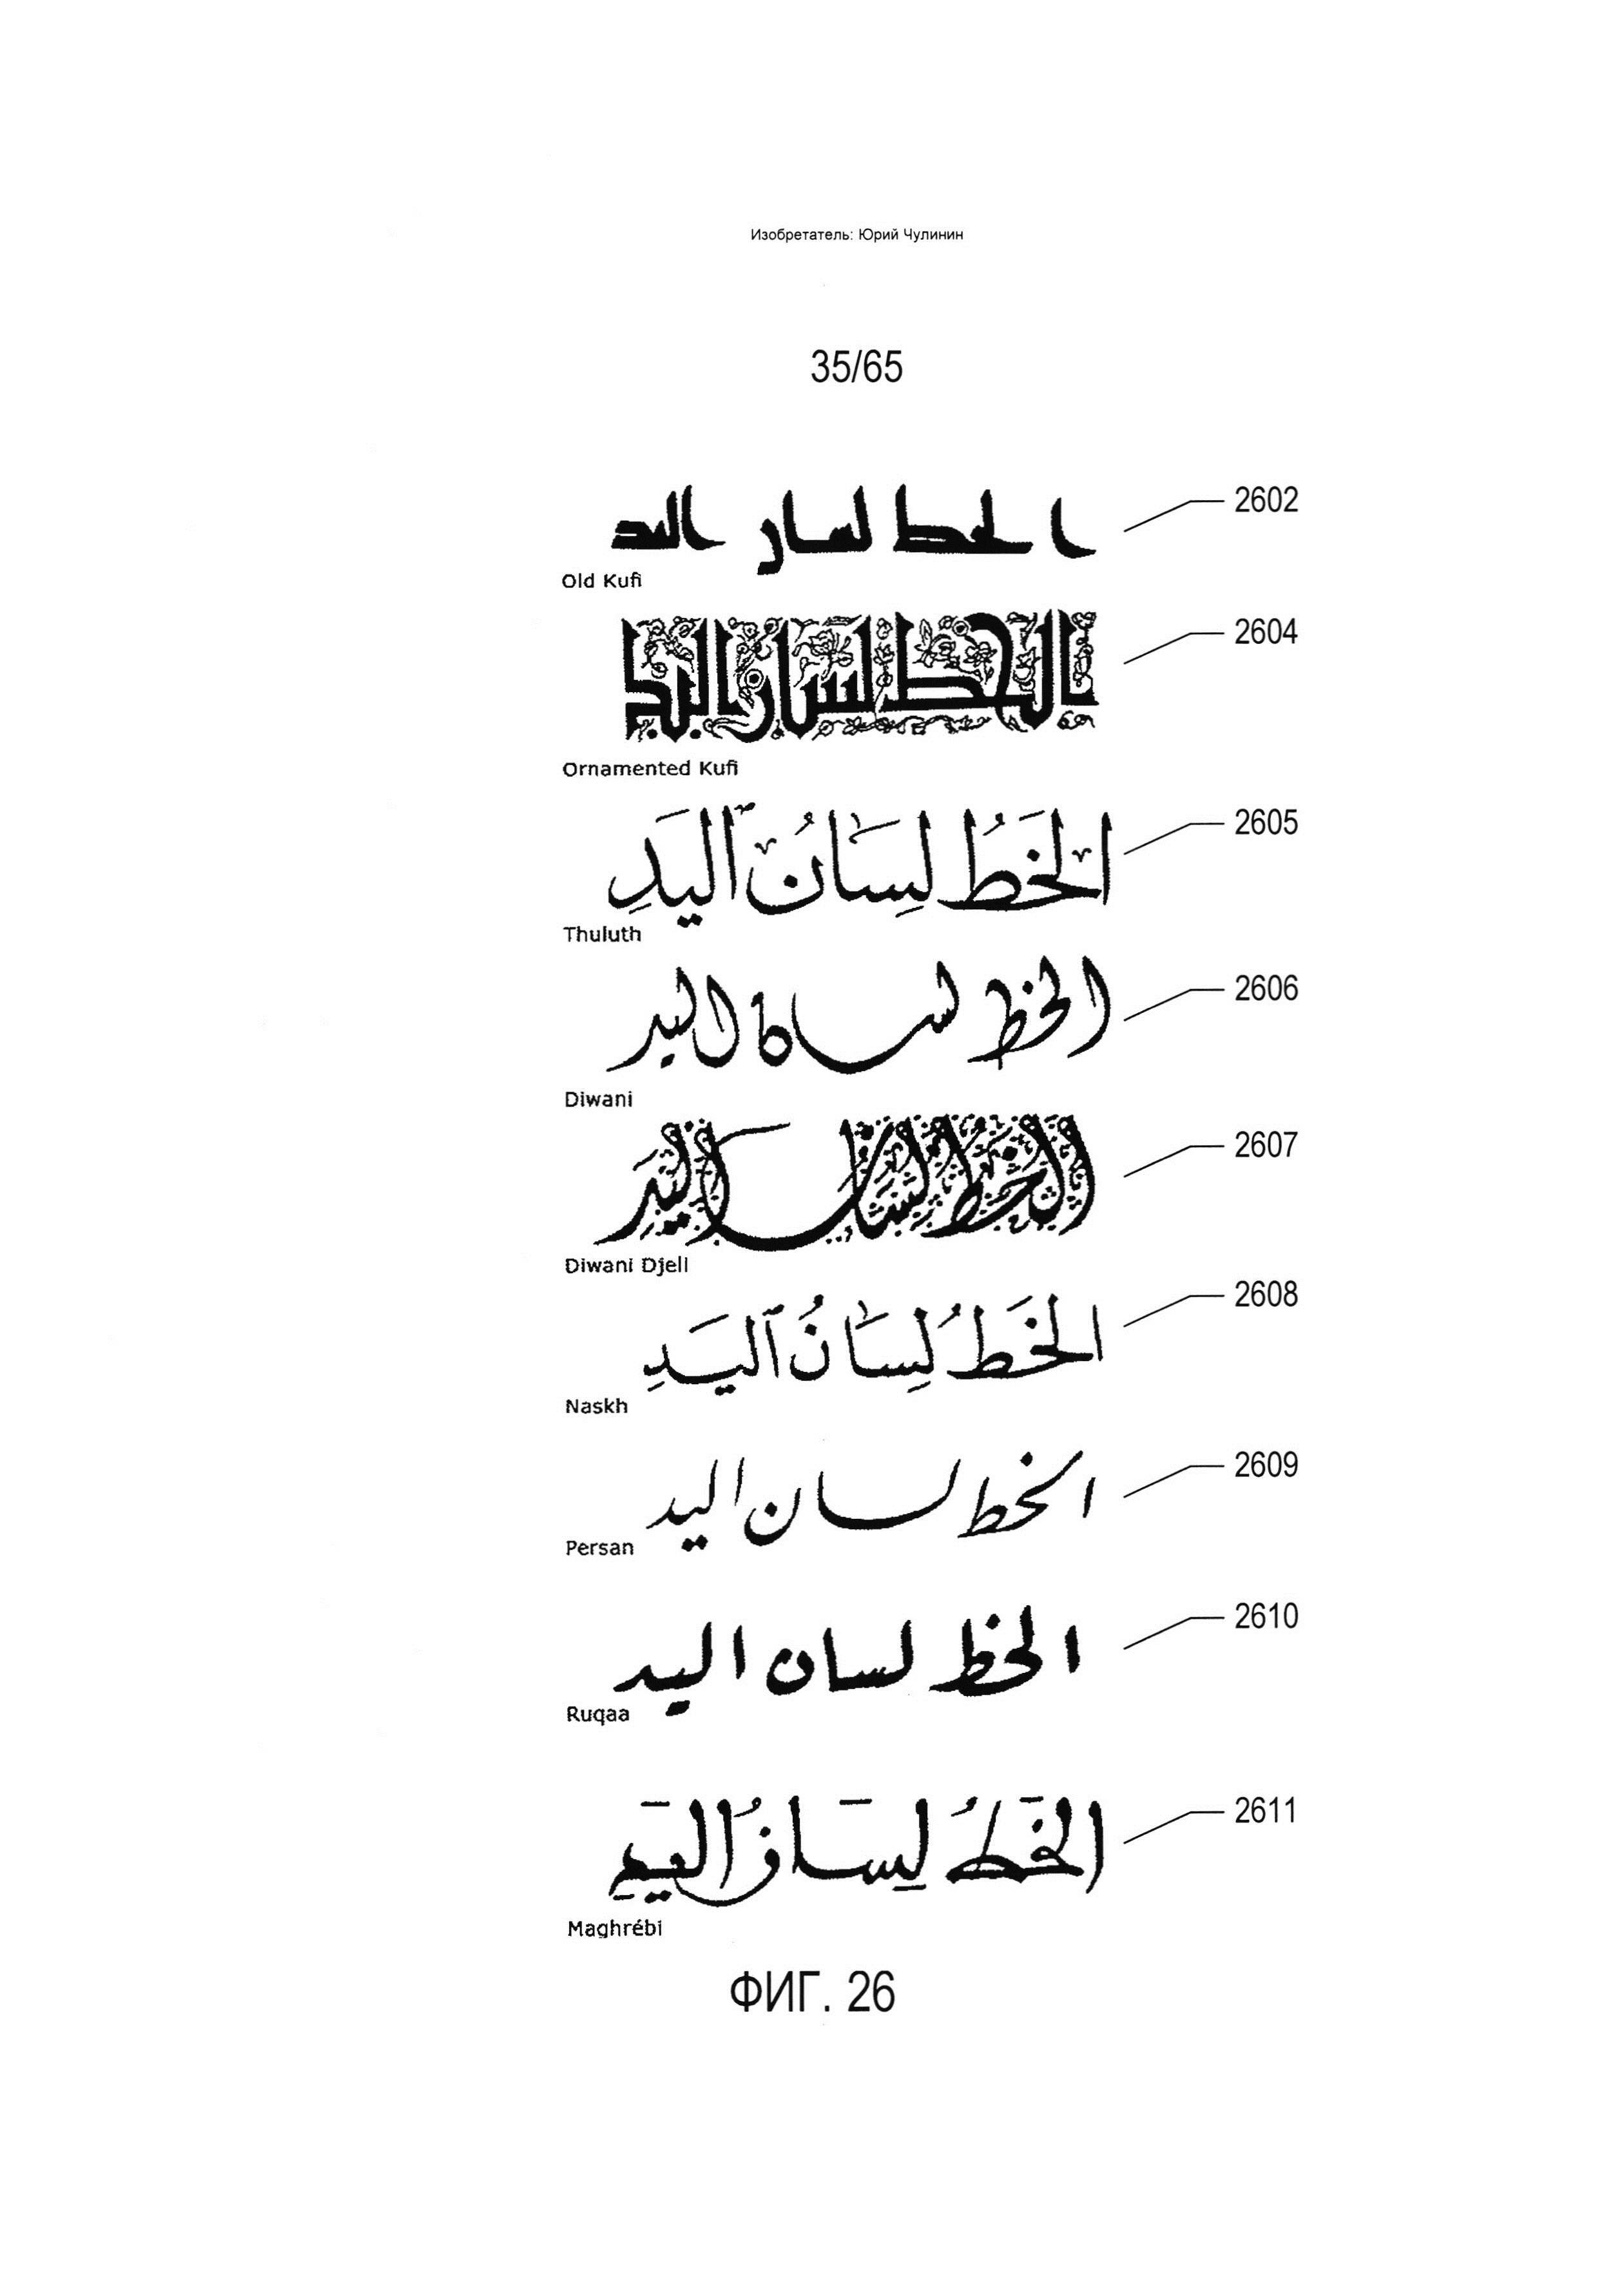 Изобретатель: Юрий Чулинин
35/65
الخط لسان اليد
2602
Old Kufi
الخط لسان اليد
2604
Ornamented Kufi
الخَطُ لِسَانُ ٱليَدِ
2605
Thuluth
الخط لسان اليد
2606
Diwani
الخط لسان اليد
2607
Diwani Djeli
الخَطُ لِسَانُ ٱليَدِ
2608
Naskh
الخط لسان اليد
2609
Persan
الخط لسان اليد
2610
Ruqaa
الخَطُ لِسَانُ اليَدِ
2611
Maghrébi
ФИГ. 26